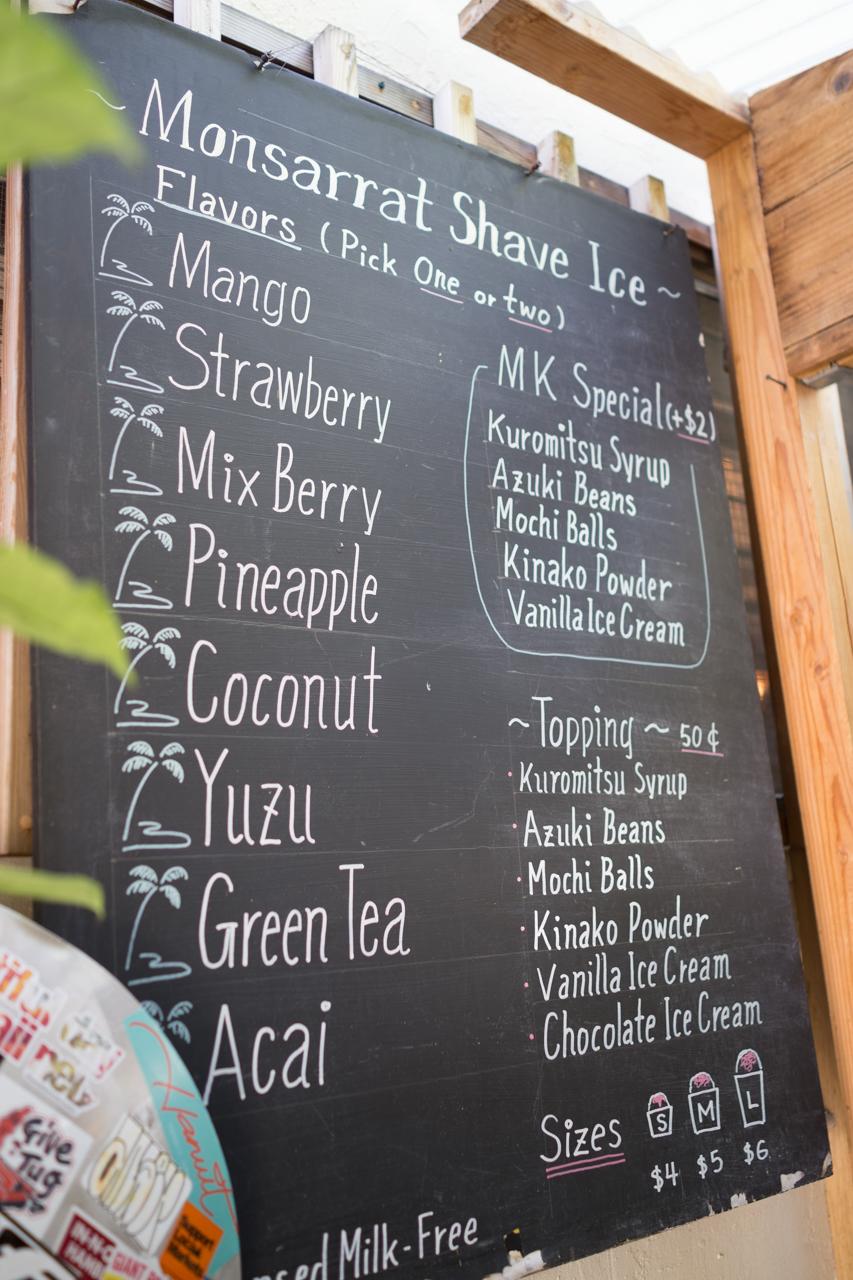 ~ Monsarrat Shave Ice ~
Flavors (Pick One or two)
Mango
Strawberry
Mix Berry
Pineapple
Coconut
Yuzu
Green Tea
Acai
MK Special (+$2)
Kuromitsu Syrup
Azuki Beans
Mochi Balls
Kinako Powder
Vanilla Ice Cream
~ Topping ~ 50¢
· Kuromitsu Syrup
· Azuki Beans
· Mochi Balls
· Kinako Powder
· Vanilla Ice Cream
· Chocolate Ice Cream
Sizes S M L
$4 $5 $6
Milk-Free
Give
Tug
Support
Local